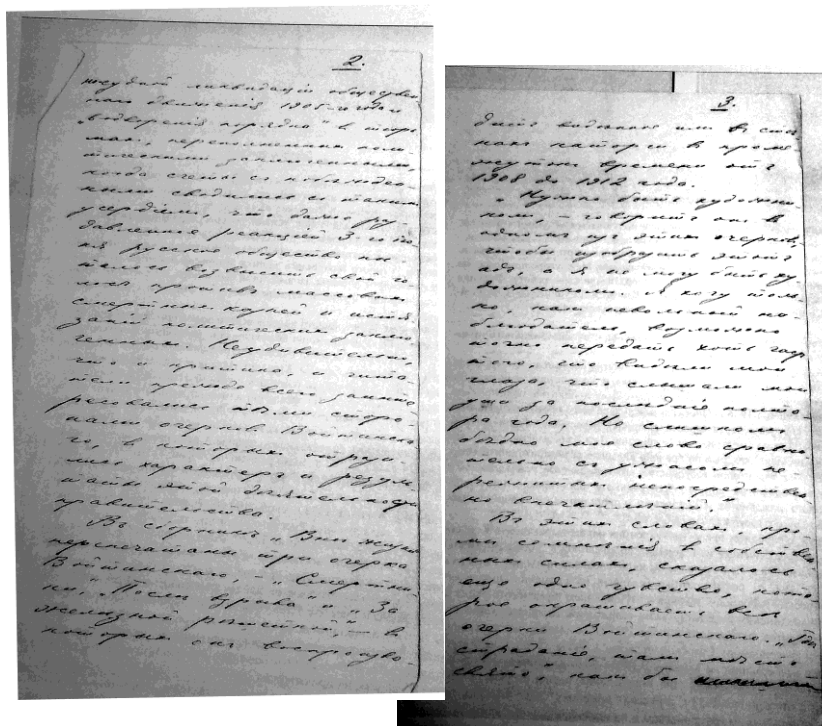 2.
ликвидаціи обществен
наго движенія 1905-го года и
„водворенія порядка“ в тюрь
мах, переполненных поли
тическими заключенными,
когда счеты с побежден
ными сводились с таким
усердіем, что даже
давленное реакціей
русское общество
возвысить свой го
лос против массовых
смертных казней и истя
заній политических заклю
ченных. Неудивительно,
что и критика, и чита
тели прежде всего заинте
ресовались теми сторо
нами очерков Войтинска
го, в которых
характер и резуль
таты этой деятельности
правительства.
Въ сборникѣ „Вне жизни“
перепечатаны три очерка
Войтинскаго, – „Смертни
ки,“ „После взрыва“ и „За
железной решеткой“, – в
которых он воспроизво-
3.
дит виденное им в сте
нах каторги в проме
жуток времени отъ
1908 до 1912 года.
„Нужно быть художни
ком, – говорит он в
одном из этих очерков,
чтобы изобразить этот
ад, а я не могу быть ху
дожником. Я хочу толь
ко, как невольный на
блюдатель, возможно
точно передать хоть часть
того, что видели мои
глаза, что слышали мои
уши за последніе полто
ра года. Но слишком
бледно мое слово сравни
тельно с ужасами пе
режитых непосредствен
но впечатленій.“
Въ этих словах, кро
ме сомненія в собствен
ных силах, сказалось
еще одно чувство, кото
рое окрашивает все
очерки Войтинскаго. „Где
страданіе, там место
свято“, как бы